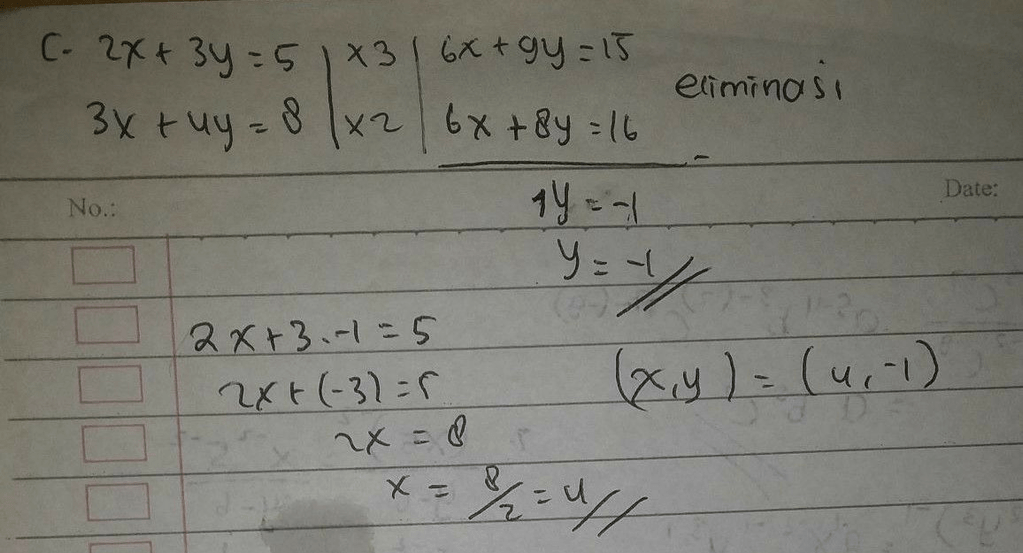 C. 2x + 3y = 5 | x3 | 6x + 9y = 15
3x + 4y = 8 | x2 | 6x + 8y = 16 -
eliminasi
No.:
Date:
1y = -1
y = -1 //
2x + 3 . -1 = 5
2x + (-3) = 5
(x, y) = (4, -1)
2x = 8
x = 8/2 = 4 //